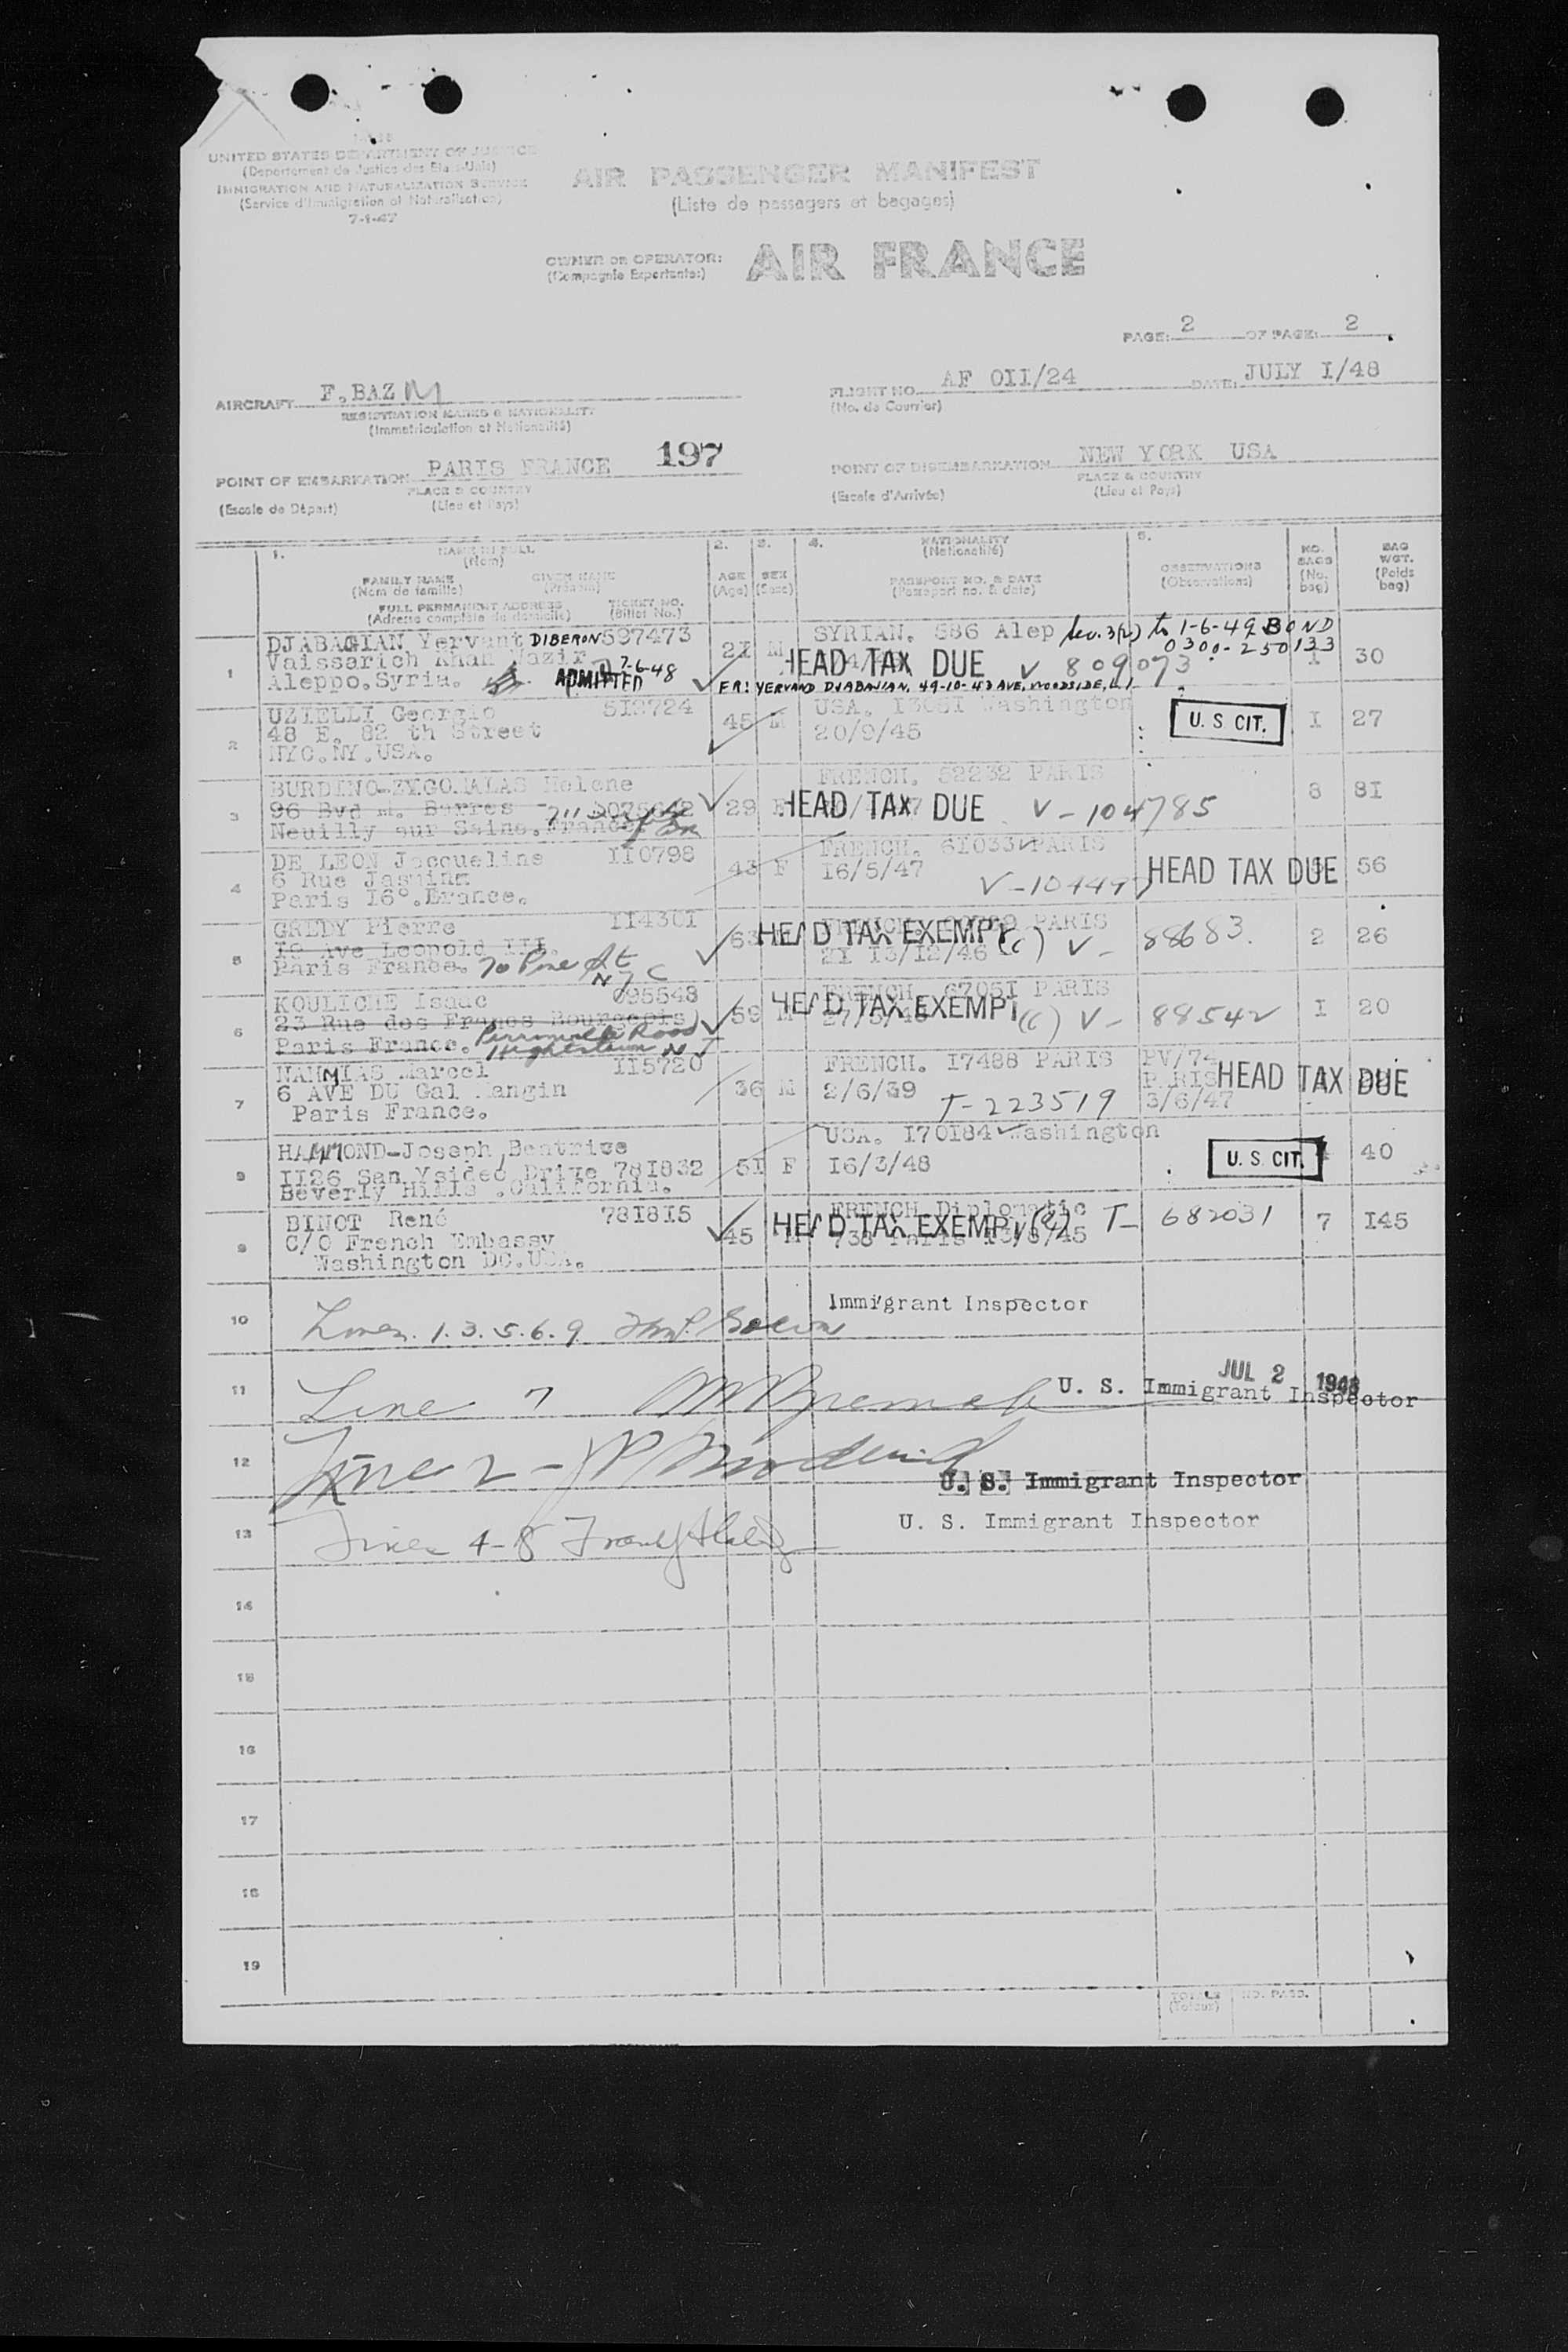 UNITED STATES DEPARTMENT OF JUSTICE
(Departement de Justice des Etats-Unis)
IMMIGRATION AND NATURALIZATION SERVICE
(Service d'Immigration et Naturalisation)
7-1-47
AIR PASSENGER MANIFEST
(Liste de passagers et bagages)
OWNER OR OPERATOR:
(Compagnie Exportante:)
AIR FRANCE
PAGE: 2 OF PAGE: 2
AIRCRAFT F.BAZM
REGISTRATION MARKS & NATIONALITY
(Immatriculation et Nationalité)
FLIGHT NO. AF 0II/24 DATE: JULY I/48
(No. de Courrier)
POINT OF EMBARKATION PARIS FRANCE 197
PLACE & COUNTRY
(Escale de Départ) (Lieu et Pays)
POINT OF DISEMBARKATION NEW YORK USA
PLACE & COUNTRY
(Escale d'Arrivée) (Lieu et Pays)
1. NAME IN FULL
(Nom)
FAMILY NAME GIVEN NAME
(Nom de famille) (Prénom)
FULL PERMANENT ADDRESS TICKET NO.
(Adresse complète de domicile) (Billet No.)
2. AGE
(Age)
3. SEX
(Sexe)
4. NATIONALITY
(Nationalité)
PASSPORT NO. & DATE
(Passeport no. & date)
5. OBSERVATIONS
(Observations)
NO. BAGS
(No. bag)
BAG WGT.
(Poids bag)
1 DJABAGIAN Yervant DIBERON 597473 2I M SYRIAN. 586 Alep 3(2) to 1-6-49 BOND
Vaissarich Khan Wazir HEAD TAX DUE V 809073 0300-250133 I 30
Aleppo.Syria. ADMITTED 7-6-48 FR: YERVAND DJABAJIAN, 49-10-43 AVE, WOODSIDE, L.I
2 UZIELLI Georgio 5I2724 45 M USA. I3051 Washington
48 E. 82 th Street 20/9/45 U. S. CIT. I 27
NYC.NY.USA.
3 BURDINO-ZYGOMALAS Helene 29 F FRENCH. 52232 PARIS
96 Bvd M. Barres 2075642 HEAD TAX DUE V-104785 8 8I
Neuilly sur Seine.France
4 DE LEON Jacqueline II0798 43 F FRENCH. 6I033 PARIS
6 Rue Jasmine I6/5/47 HEAD TAX DUE 56
Paris I6°.France.
5 GREDY Pierre II430I 63 FRENCH. PARIS
I9 Ave Leopold III. HEAD TAX EXEMPT (c) V- 88683. 2 26
Paris France. 70 Pine St I3/I2/46
N Y C
6 KOULICHE Isaac 095548 59 M FRENCH. 6705I PARIS
23 Rue des Francs Bourgeois HEAD TAX EXEMPT (c) V- 88542 I 20
Paris France. Perrineville Road
Hightstown N J
7 NAHMIAS Marcel II5720 36 M FRENCH. I7488 PARIS PV/74
6 AVE DU Gal Mangin 2/6/39 T-223519 PARIS HEAD TAX DUE
Paris France. 3/6/47
8 HAMMOND-Joseph, Beatrice 5I F USA. I70I84 Washington
II26 San Ysideo Drive 78I832 I6/3/48 U. S. CIT. 40
Beverly Hills .California.
9 BINOT René 78I8I5 45 M FRENCH Diplomatic
C/O French Embassy HEAD TAX EXEMPT T- 682031 7 I45
Washington DC.USA. 738 Paris
10 Lines. 1. 3. 5. 6. 9 Immigrant Inspector
11 Line 7 U. S. Immigrant Inspector JUL 2 1948
12 Line 2 - U. S. Immigrant Inspector
13 Lines 4-8 U. S. Immigrant Inspector
14
15
16
17
18
19
TOTALS
(Totaux)
NO. PASS.